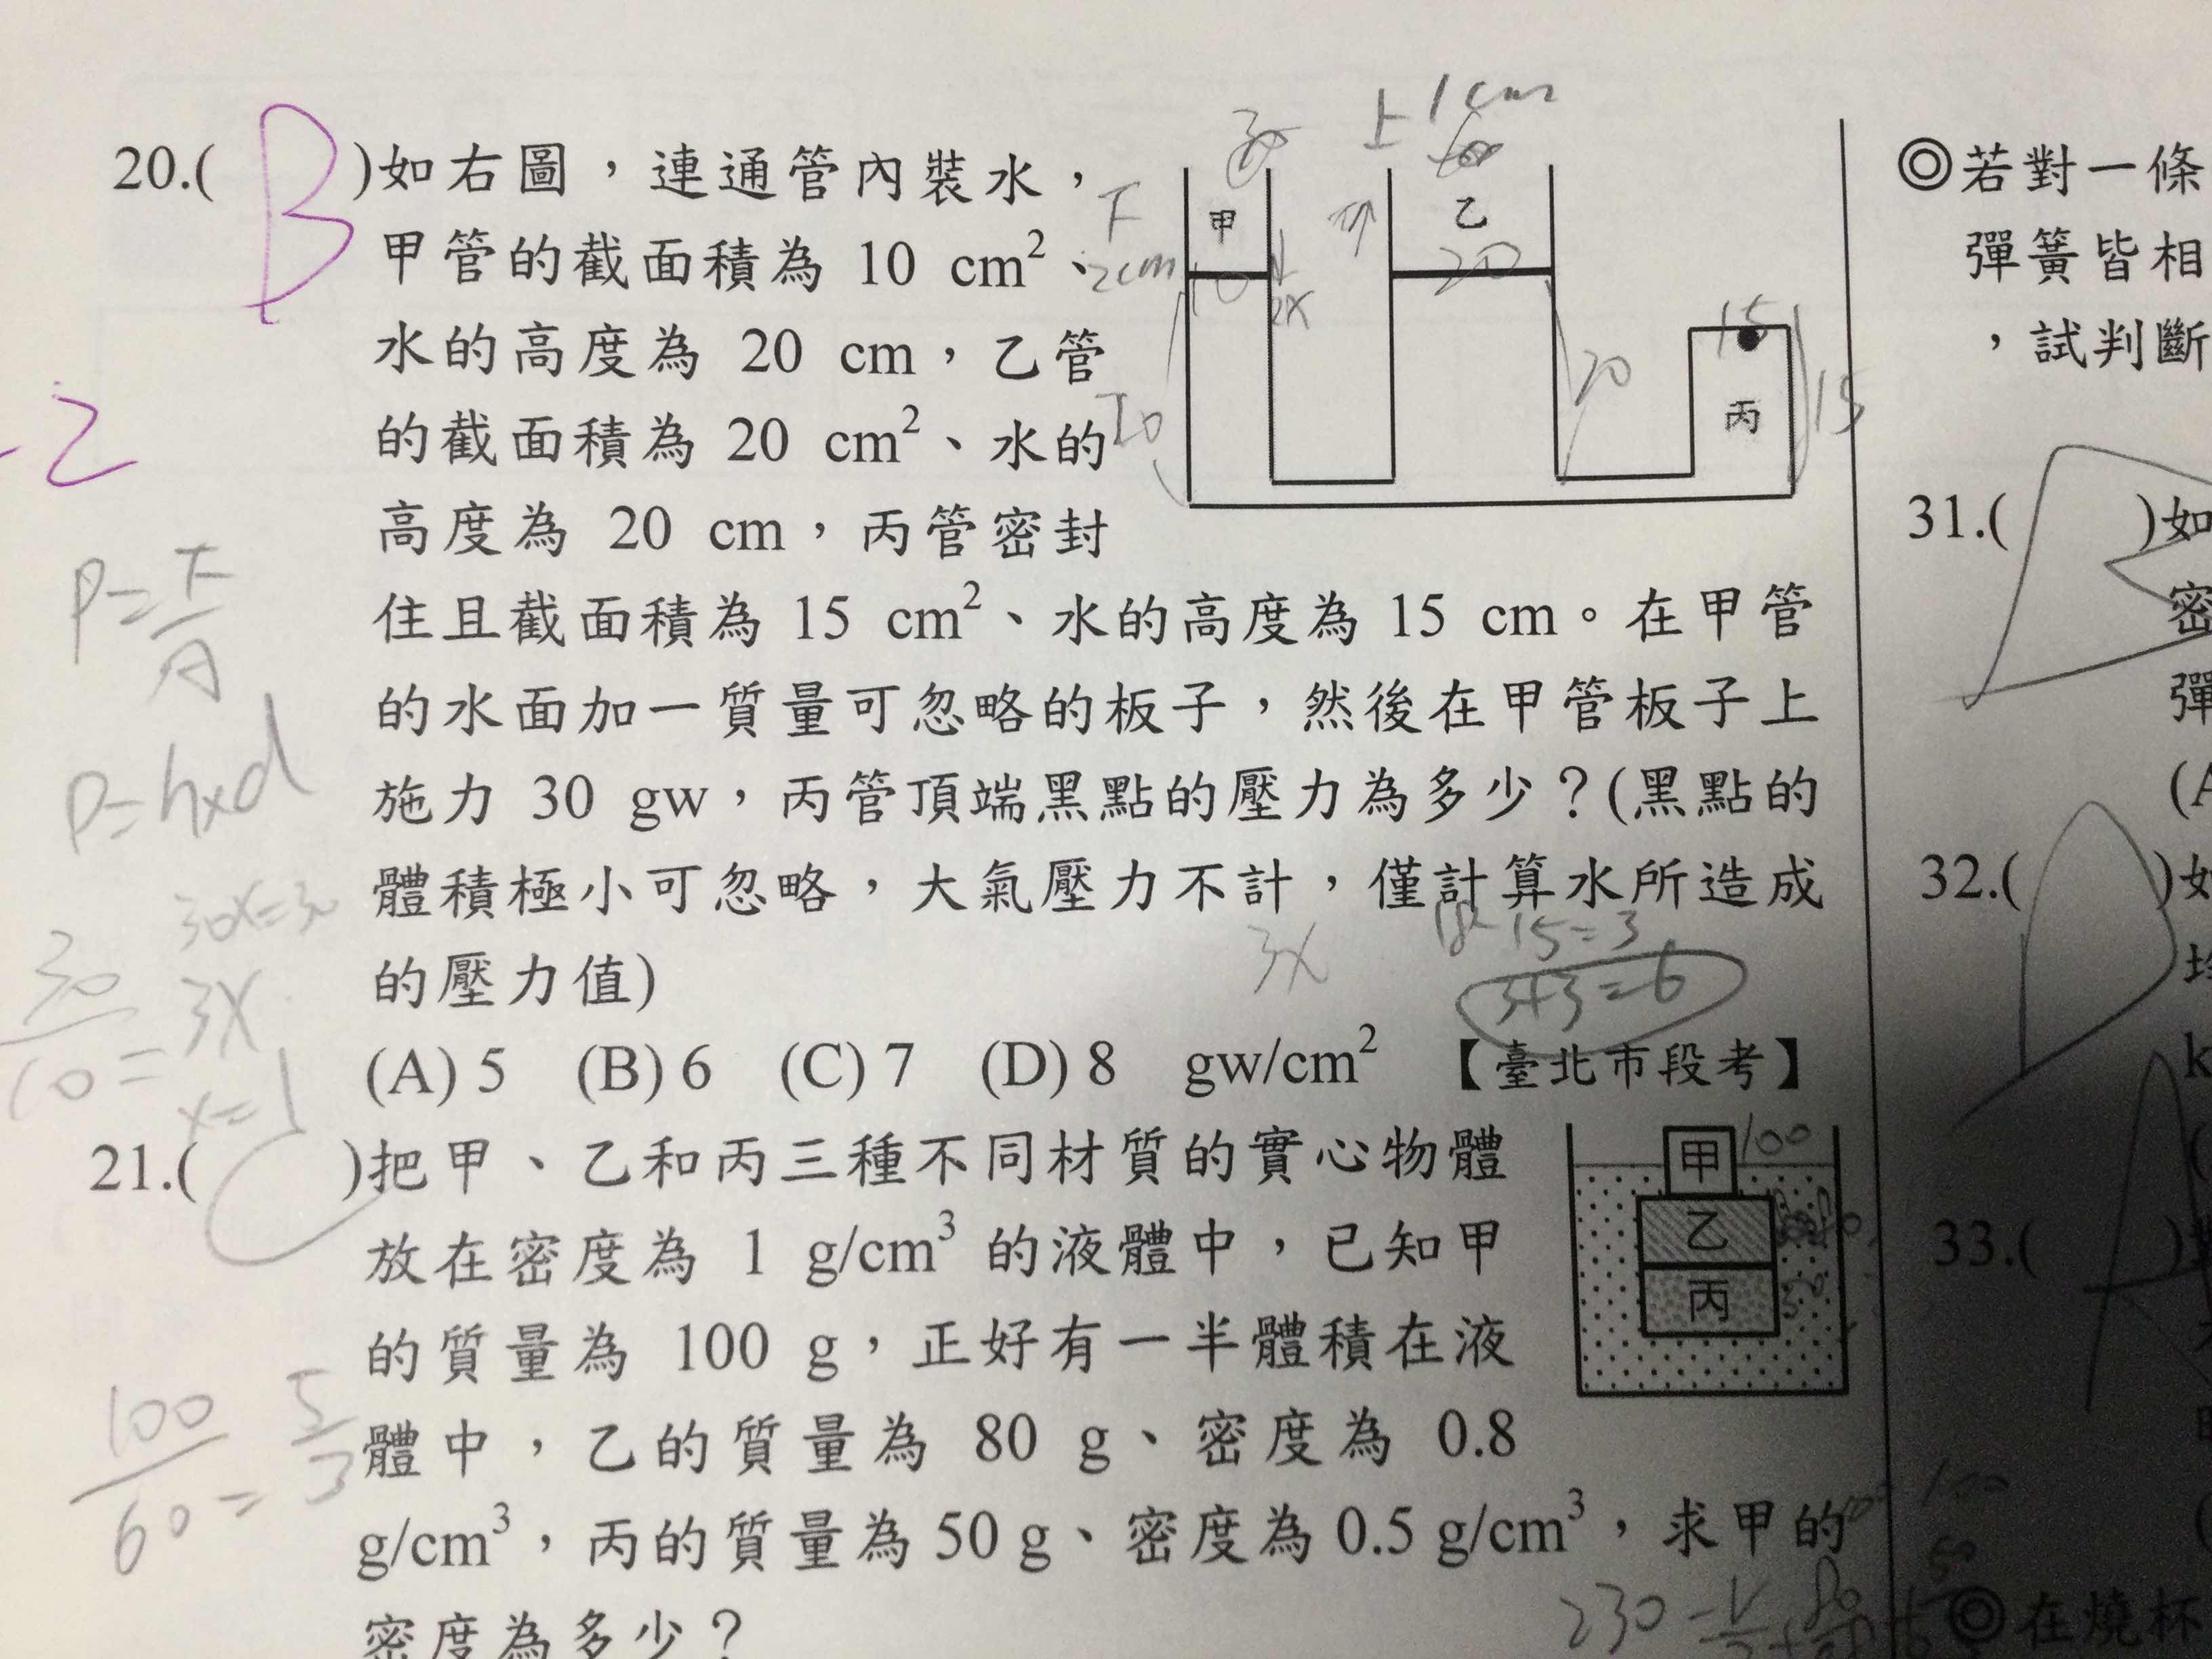 20.( B )如右圖，連通管內裝水，
甲管的截面積為 10 cm²、
水的高度為 20 cm，乙管
的截面積為 20 cm²、水的
高度為 20 cm，丙管密封
住且截面積為 15 cm²、水的高度為 15 cm。在甲管
的水面加一質量可忽略的板子，然後在甲管板子上
施力 30 gw，丙管頂端黑點的壓力為多少？(黑點的
體積極小可忽略，大氣壓力不計，僅計算水所造成
的壓力值)
(A) 5 (B) 6 (C) 7 (D) 8 gw/cm² 【臺北市段考】
上 1cm
下
2cm
甲
乙
丙
10
20
2X
20
15
15
-2
P=F/A
P=h×d
30X=30
30/10=3X
X=1
3X
18-15=3
3+3=6
21.( )把甲、乙和丙三種不同材質的實心物體
放在密度為 1 g/cm³ 的液體中，已知甲
的質量為 100 g，正好有一半體積在液
體中，乙的質量為 80 g、密度為 0.8
g/cm³，丙的質量為 50 g、密度為 0.5 g/cm³，求甲的
密度為多少？
甲
100
乙
丙
100/60=5/3
◎若對一條
彈簧皆相
，試判斷
31.( )如
密
彈
(A
32.( )如
k
33.( )
◎在燒杯